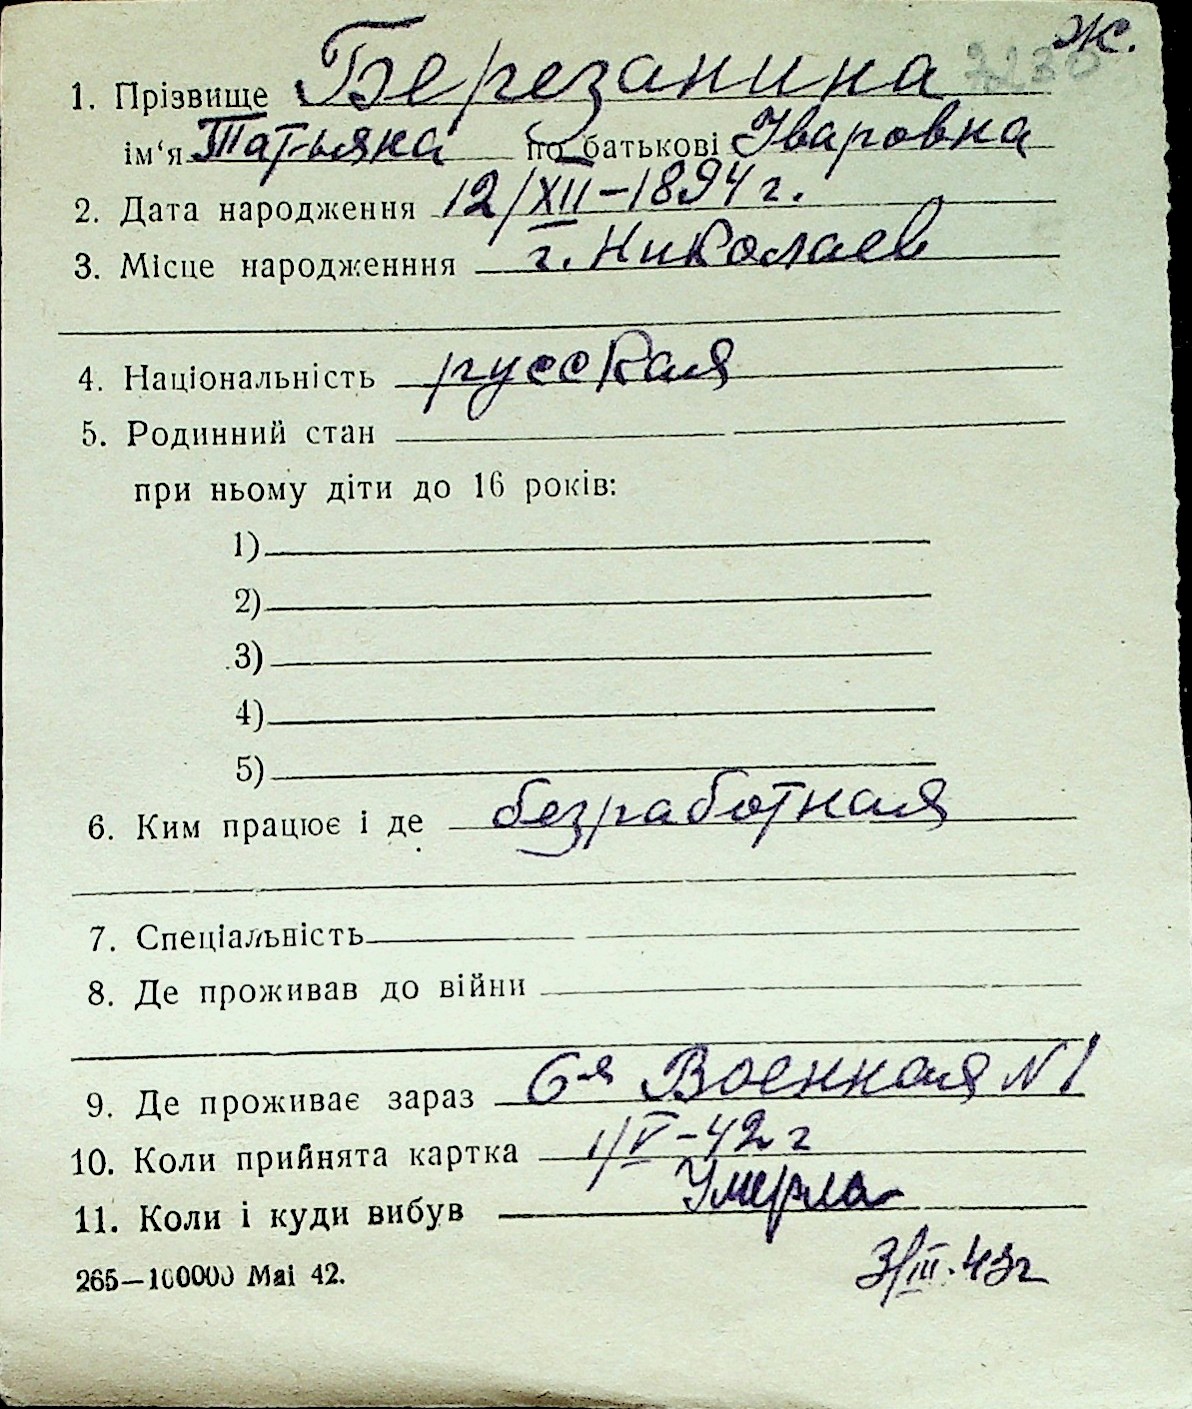 Ж.
1. Прізвище Березанина
ім‘я Татьяна по батькові Уваровна
2. Дата народження 12/XII–1894 г.
3. Місце народженння г. Николаев
4. Національність русская
5. Родинний стан
при ньому діти до 16 років:
1)
2)
3)
4)
5)
6. Ким працює і де безработная
7. Спеціальність
8. Де проживав до війни
9. Де проживає зараз 6-я Военная N 1
10. Коли прийнята картка 1/V–42 г
11. Коли і куди вибув Умерла
265—100000 Mai 42. 3/III.43г